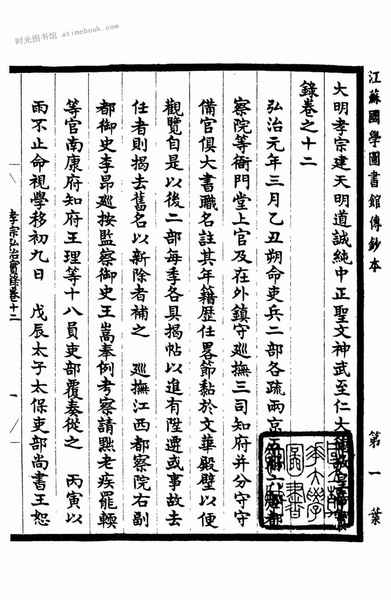 时光图书馆 atimebook.com
江蘇國學圖書館傳鈔本
第一葉
大明孝宗建天明道誠純中正聖文神武至仁大德敬皇帝實
錄卷之十二
弘治元年三月乙丑朔命吏兵二部各疏兩京
察院等衙門堂上官及在外鎮守廵撫三司知府并分守守
備官俱大書職名註其年籍歷任畧節黏於文華殿壁以便
觀覽自是以後二部每季各具揭帖以進有陞遷或事故去
任者則揭去舊名以新除者補之 廵撫江西都察院右副
都御史李昂廵按監察御史王嵩奉例考察請黜老疾罷輭
等官南康府知府王理等十八員吏部覆奏從之 丙寅以
雨不止命視學移初九日 戊辰太子太保吏部尚書王恕
孝宗弘治實錄卷十二
一